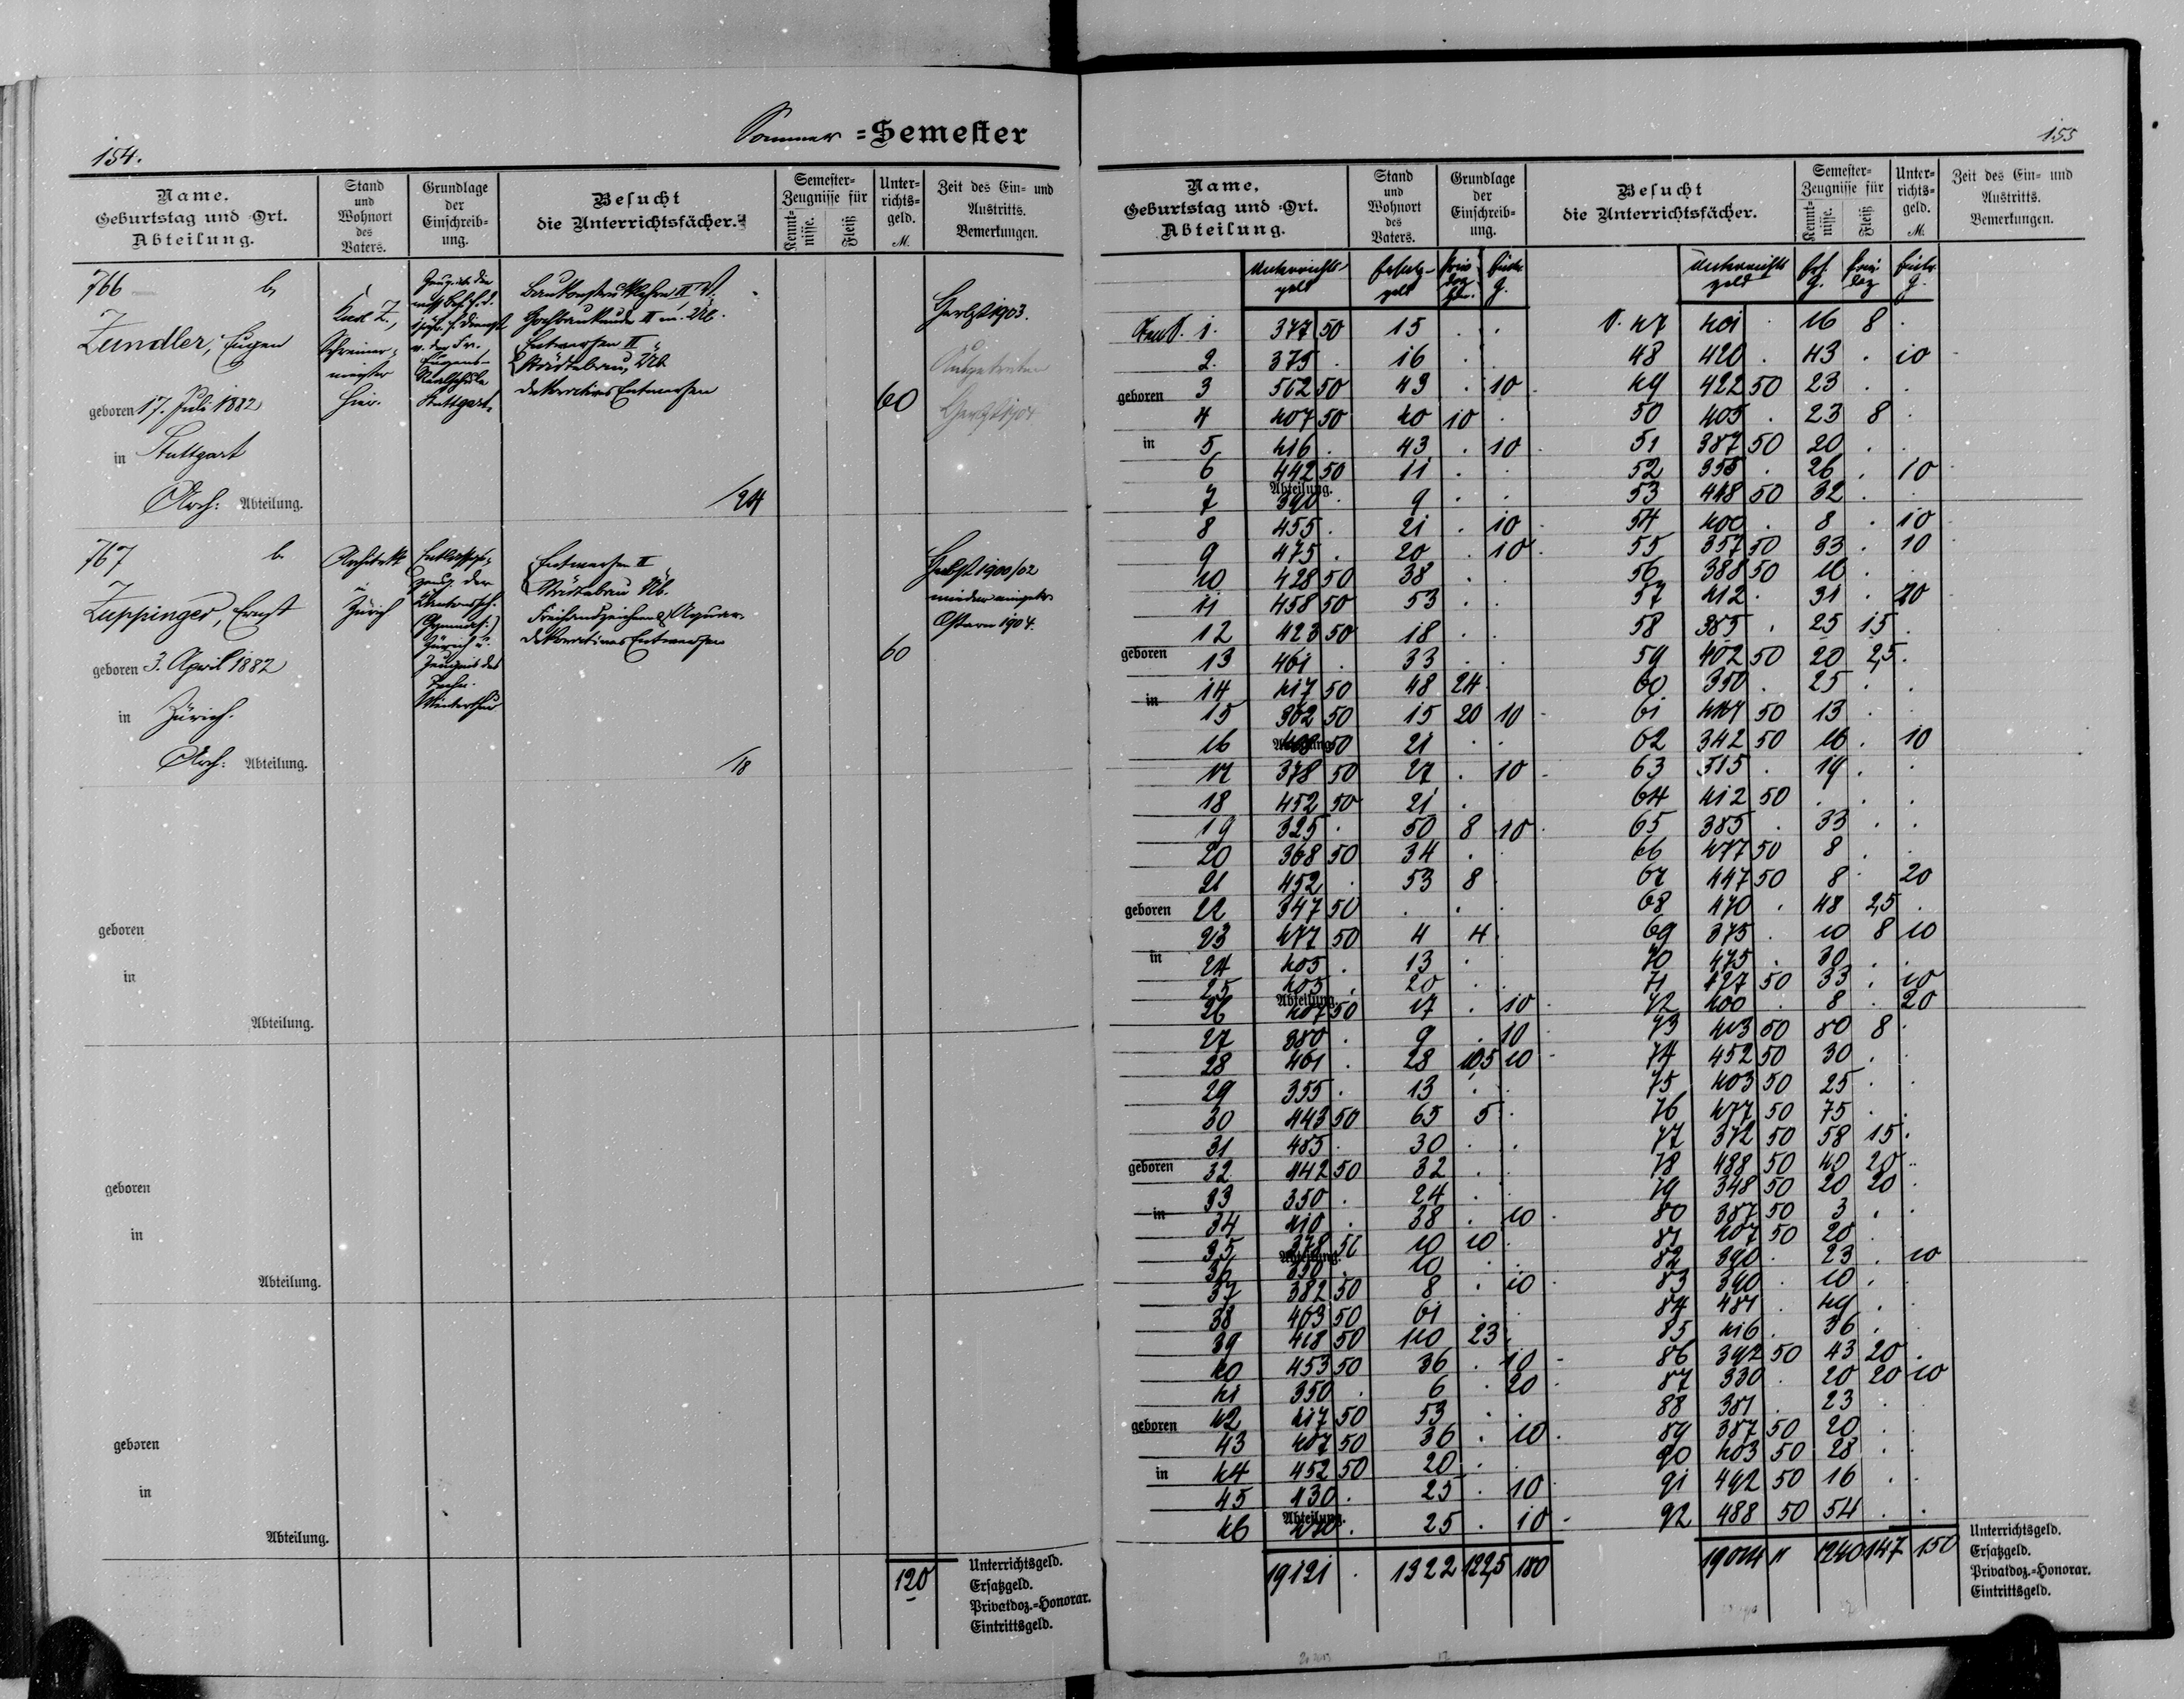 Sommer =Semester
154.
Name.
Geburtstag und -Ort.
Abteilung.
Stand
und
Wohnort
des
Vaters.
Grundlage
der
Einschreib-
ung.
Besucht
die Unterrichtsfächer.
Semester-
Zeugnisse für
Kennt-
nisse.
Fleiß
Unter-
richts-
geld.
M.
Zeit des Ein- und
Austritts.
Bemerkungen.
766 b.
Zundler, Eugen
geboren 17. Juli 1882
in Stuttgart
Arch: Abteilung.
Karl Z.,
Schreiner-
meister
hier.
Realschule
Stuttgart.
Hochbaukunde II m. Üb.
Entwerfen II
Städtebau, Üb
dekoratives Entwerfen
24
60
Herbst 1903.
Herbst 1904
767 b.
Zuppinger, Ernst
geboren 3. April 1882
in Zürich.
Arch: Abteilung.
Architekt
in
Zürich
Zürich u.
Zeugnis des
Techn.
Winterthur
Entwerfen II
Städtebau Üb.
Freihandzeichnen & Aquar.
dekoratives Entwerfen
18
60
Herbst 1900/02
wieder eingetr.
Ostern 1904.
geboren
in
Abteilung.
geboren
in
Abteilung.
geboren
in
Abteilung.
120
Unterrichtsgeld.
Ersatzgeld.
Privatdoz.-Honorar.
Eintrittsgeld.
155
Name,
Geburtstag und -Ort.
Abteilung.
Stand
und
Wohnort
des
Vaters.
Grundlage
der
Einschreib-
ung.
Besucht
die Unterrichtsfächer.
Semester-
Zeugnisse für
Kennt-
nisse.
Fleiß.
Unter-
richts-
geld.
M.
Zeit des Ein- und
Austritts.
Bemerkungen.
Unterrichts-
geld
Ersatz-
geld
Unterrichts
geld
1. 377 50 15 . .
2. 375 . 16 . .
geboren 3 562 50 43 . 10
4 407 50 40 10 .
in 5 416 . 43 . 10
6 442 50 11 . .
7 390 . 9 . .
8 455 . 21 . 10
9 475 . 20 . 10
10 428 50 38 . .
11 458 50 53 . .
12 423 50 18 . .
geboren 13 461 . 33 . .
in 14 417 50 48 24
15 362 50 15 20 10
16 50 21 . .
17 378 50 27 . 10
18 452 50 21 .
19 325 . 50 8 10
20 368 50 34 . .
21 452 . 53 8
geboren 22 347 50 . . .
23 477 50 4 4
in 24 405 . 13 .
25 405 . 20 . .
26 407 50 17 . 10
27 380 . 9 . 10
28 461 . 28 10,5 10
29 355 . 13 . .
30 443 50 65 5 .
31 485 . 30 . .
geboren 32 442 50 32 . .
33 350 . 24 . .
in 34 410 . 38 . 10
35 378 50 10 10 .
36 350 . 10 . .
37 382 50 8 . 10
38 463 50 61 . .
39 418 50 110 23 .
40 453 50 36 . 10
41 350 . 6 . 20
geboren 42 417 50 53 . .
43 407 50 36 . 10
in 44 452 50 20 . .
45 430 . 25 . 10
46 . 25 . 10
Abteilung.
19121 . 1322 122,5 180
47 401 . 16 8 .
48 420 . 43 . 10
49 422 50 23 . .
50 405 . 23 8 .
51 387 50 20 . .
52 355 . 26 . 10
53 448 50 32 . .
54 400 . 8 . 10
55 357 50 33 . 10
56 388 50 16 . .
57 412 . 31 . 20
58 385 . 25 15 .
59 402 50 20 2,5 .
60 350 . 25 . .
61 50 13 . .
62 342 50 16 . 10
63 515 . 19 . .
64 412 50 . . .
65 385 . 33 . .
66 477 50 8 . .
67 447 50 8 . 20
68 470 . 48 2,5 .
69 375 . 10 8 10
70 475 . 30 . .
71 427 50 33 . 10
72 400 . 8 . 20
73 413 50 80 8 .
74 452 50 30 . .
75 403 50 25 . .
76 477 50 75 . .
77 372 50 58 15 .
78 488 50 40 20 .
79 348 50 20 20 .
80 387 50 3 . .
81 407 50 20 . .
82 390 . 23 . 10
83 390 . 10 . .
84 481 . 49 . .
85 416 . 36 . .
86 392 50 43 20 .
87 330 . 20 20 10
88 381 . 23 . .
89 387 50 20 . .
90 403 50 28 . .
91 492 50 16 . .
92 488 50 54 . .
1240 147 150
Unterrichtsgeld.
Ersatzgeld.
Privatdoz.-Honorar.
Eintrittsgeld.